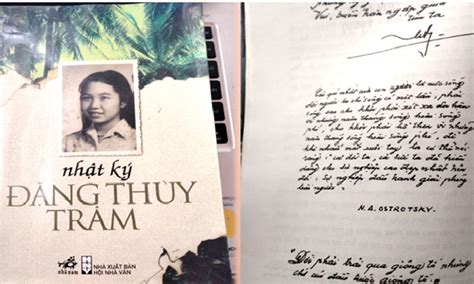 nhật ký
ĐẶNG THÙY
TRÂM
nhã nam
NHÀ XUẤT BẢN
HỘI NHÀ VĂN
người ta
đời người ta chỉ sống có một lần, phải
sống sao cho khỏi xót xa ân hận
vì những năm tháng sống hoài sống
phí, cho khỏi phải hổ thẹn vì những
năm tháng sống
khi nhắm mắt xuôi tay ta có thể nói
rằng: cả đời ta, cả sức ta đã hiến
dâng cho sự nghiệp cao đẹp nhất trên
đời, sự nghiệp đấu tranh giải phóng
loài người"
N.A. OSTROTSKY.
"Đời phải trải qua giông tố nhưng
chớ cúi đầu trước giông tố"